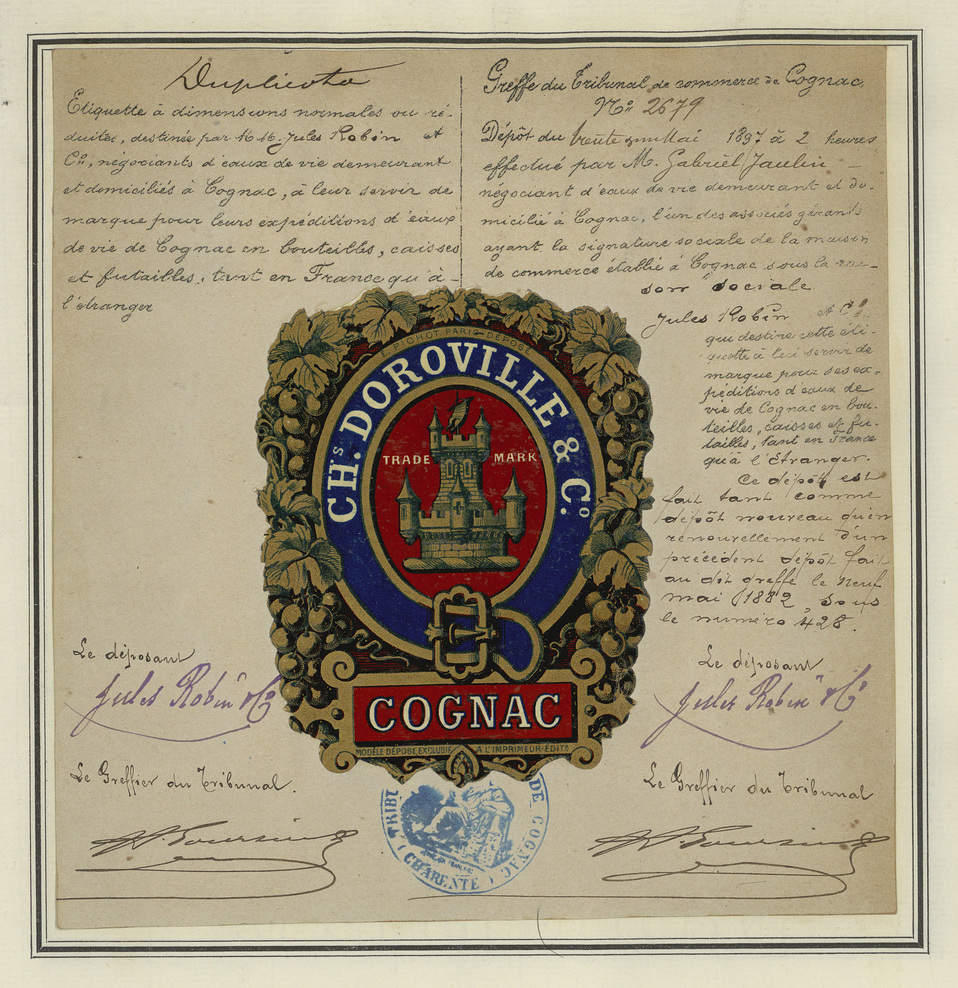 Duplicata
Etiquette à dimensions normales ou ré-
duites, destinée par M.M. Jules Robin et
Cie, négociants d'eaux de vie demeurant
et domiciliés à Cognac, à leur servir de
marque pour leurs expéditions d'eaux
de vie de Cognac en bouteilles, caisses
et futailles, tant en France qu'à
l'étranger
Greffe du Tribunal de commerce de Cognac.
No 2679
Dépôt du trente un Mai 1897 à 2 heures
effectué par M. Gabriel Jaulin
négociant d'eaux de vie demeurant et do-
micilié à Cognac, l'un des associés gérants
ayant la signature sociale de la maison
de commerce établie à Cognac sous la rai-
son sociale
Jules Robin et Cie
qui destine cette éti-
quette à lui servir de
marque pour ses ex-
péditions d'eaux de
vie de Cognac en bou-
teilles, caisses et fu-
tailles, tant en France
qu'à l'étranger.
Ce dépôt est
fait tant comme
dépôt nouveau qu'en
renouvellement d'un
précédent dépôt fait
au dit greffe le neuf
mai 1882, sous
le numéro 428.
E. PICHOT PARIS DÉPOSÉ
CHs. DOROVILLE & Co.
TRADE MARK
COGNAC
MODÈLE DÉPOSÉ EXCLUSIF A L'IMPRIMEUR-ÉDITR
Le déposant
Jules Robin & Cie
Le Greffier du Tribunal.
Le déposant
Jules Robin & Cie
Le Greffier du Tribunal
TRIBU DE COGNAC
(CHARENTE)